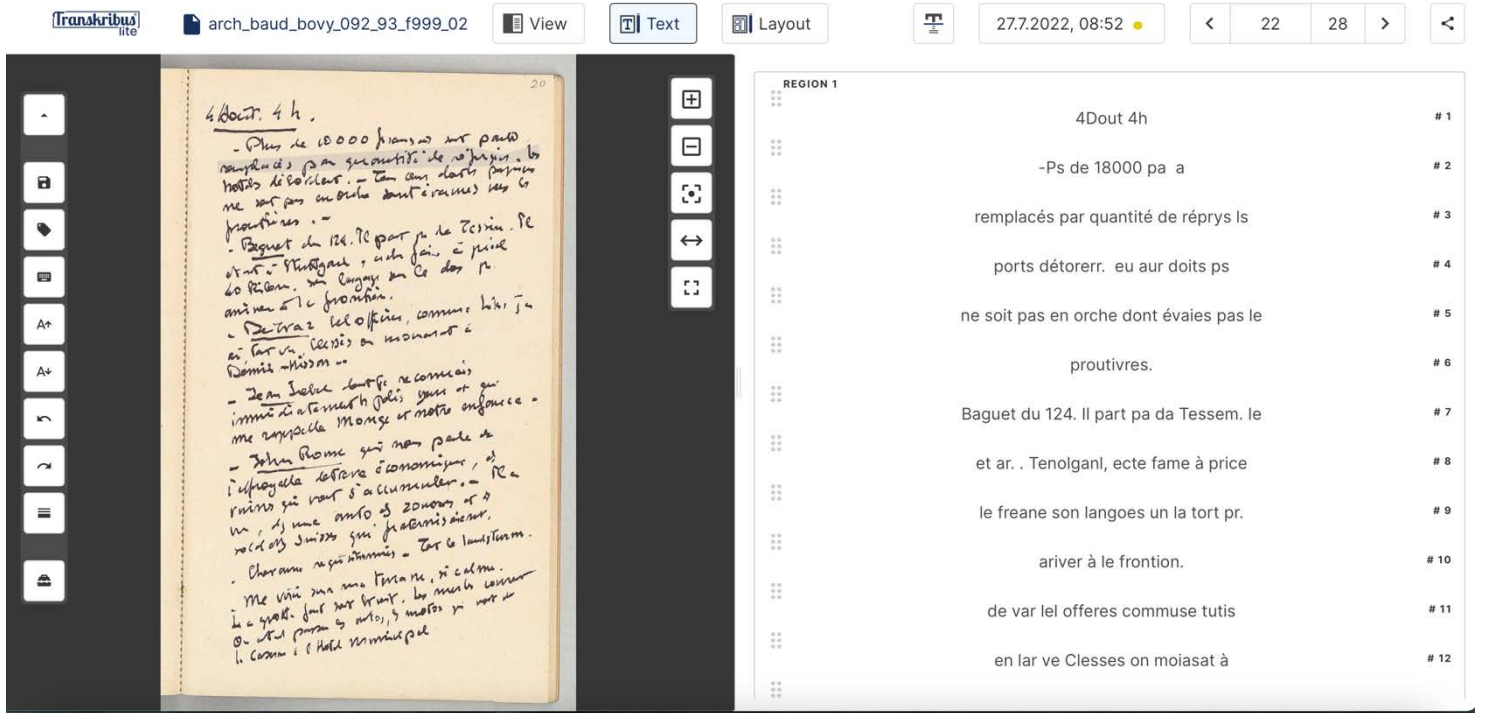 Transkribus
lite
arch_baud_bovy_092_93_f999_02
View
Text
Layout
27.7.2022, 08:52
22
28
20
4 Aout. 4 h.
- Plus de 10000 français sont partis
remplacés par quantité de réfugiés. Les
hotels débordent. - Tous ceux dont les papiers
ne sont pas en ordre sont évacués vers les
frontières. -
- Baguet du 124. Il part pr le Tessin. Il
était à Stuttgart, a du faire à pied
40 kilom. ses bagages sur le dos pr
arriver à la frontière.
- De Traz lel officier, comme
ai
- Jean que je reconnais
immédiatement et qui
me rappelle Monge et notre enfance.
- John Rome qui nous parle de
l'effroyable détresse économique,
ruines qui vont s'accumuler. - Il a
vu, une auto et zouaves et
soldats suisses qui fraternisaient.
- Chevaux réquisitionnés - Tout le landsturm.
Me voici sur ma terrasse, si calme.
La grotte fait son bruit. Les merles
On entend passer autos, motos qui vont de
la Caserne à l'Hotel Municipal
REGION 1
4Dout 4h # 1
-Ps de 18000 pa a # 2
remplacés par quantité de réprys ls # 3
ports détorerr. eu aur doits ps # 4
ne soit pas en orche dont évaies pas le # 5
proutivres. # 6
Baguet du 124. Il part pa da Tessem. le # 7
et ar. . Tenolganl, ecte fame à price # 8
le freane son langoes un la tort pr. # 9
ariver à le frontion. # 10
de var lel offeres commuse tutis # 11
en lar ve Clesses on moiasat à # 12